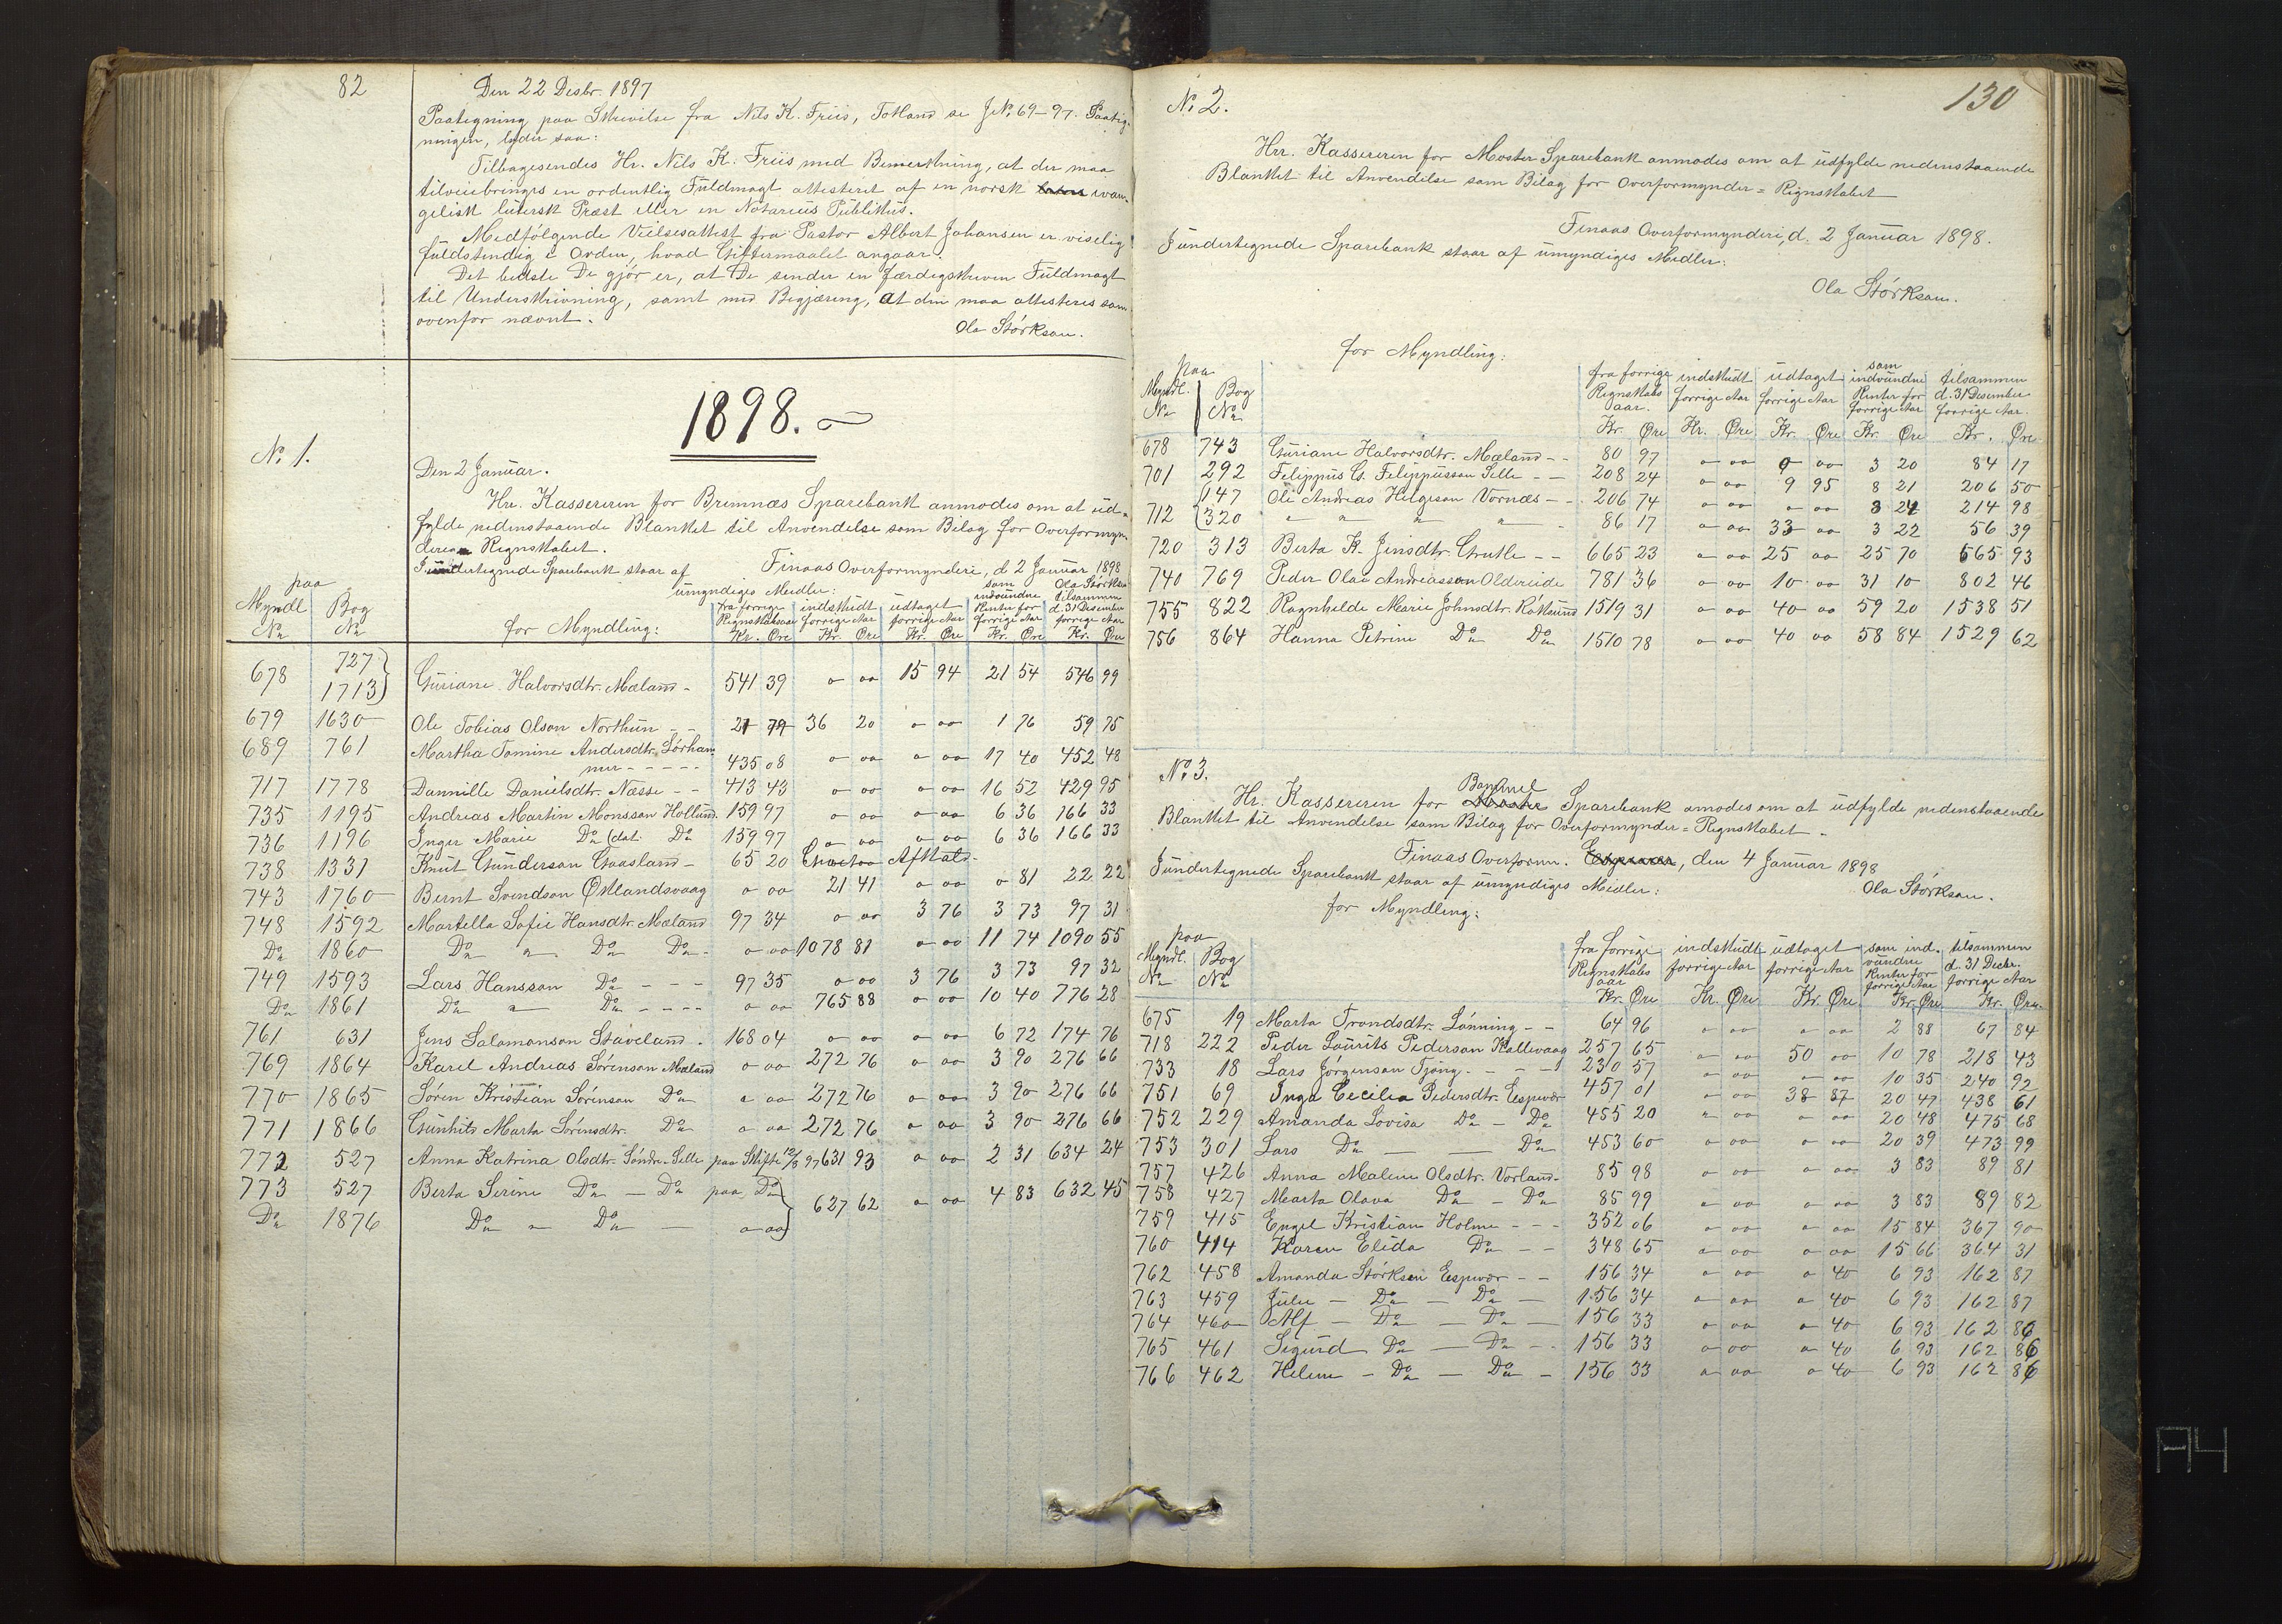 82
Den 22 Desbr. 1897
Paategning paa Skrivelse fra Nils K. Friis, Totland se J.No. 69-97. Paateg-
ningen, lyder saa:
Tilbagesendes Hr. Nils K. Friis med Bemerkning, at der maa
tilveiebringes en ordentlig Fuldmagt attesteret af en norsk evan-
gelisk lutersk Præst eller en Notarius Publikus.
Medfølgende Vielsesattest fra Pastor Albert Johansen er viselig
fuldstendig i Orden, hvad Giftermaalet angaar.
Det bedste De gjør er, at De sender en færdigskreven Fuldmagt
til Underskrivning, samt med Begjæring, at den maa attesteres som
ovenfor nævnt.
Ola Størksen.
1898.
No. 1.
Den 2 Januar.
Hr. Kassereren for Bremnæs Sparebank anmodes om at ud-
fylde nedenstaaende Blanket til Anvendelse som Bilag for Overformyn-
deriets Regnskabet.
Finaas Overformynderi, d. 2 Januar 1898
Ola Størksen
I undertegnede Sparebank staar af
umyndiges Midler:
paa
Myndl. No Bog No for Myndling: fra forrige Regnskabsaar indskudt forrige Aar udtaget forrige Aar som indvundne Renter for forrige Aar tilsammen d. 31 Desember forrige Aar
Kr. Øre Kr. Øre Kr. Øre Kr. Øre Kr. Øre
678 727 1713 } Guriane Halvorsdtr. Mæland - 541 39 0 00 15 94 21 54 546 99
679 1630 Ole Tobias Olson Northun - - 21 79 36 20 0 00 1 76 59 75
689 761 Martha Tomine Andersdtr. Sørham-
mer - - - - - 435 08 0 00 0 00 17 40 452 48
717 1778 Dannille Danielsdtr. Næsse - - 413 43 0 00 0 00 16 52 429 95
735 1195 Andreas Martin Monsson Hollund 159 97 0 00 0 00 6 36 166 33
736 1196 Inger Marie Do (dat. Do 159 97 0 00 0 00 6 36 166 33
738 1331 Knut Gunderson Gaasland - 65 20
743 1760 Bernt Svendson Østlandsvaag 0 00 21 41 0 00 0 81 22 22
748 1592 Martella Sofie Hansdtr. Mæland 97 34 0 00 3 76 3 73 97 31
Do 1860 Do " Do Do - 0 00 1078 81 0 00 11 74 1090 55
749 1593 Lars Hansson Do - - - 97 35 0 00 3 76 3 73 97 32
Do 1861 Do — Do - - - - 0 00 765 88 0 00 10 40 776 28
761 631 Jens Salomonson Staveland - 168 04 0 00 0 00 6 72 174 76
769 1864 Karl Andreas Sørenson Mæland 0 00 272 76 0 00 3 90 276 66
770 1865 Søren Kristian Sørenson Do 0 00 272 76 0 00 3 90 276 66
771 1866 Gunhild Marta Sørensdtr. Do 0 00 272 76 0 00 3 90 276 66
772 527 Anna Katrina Olsdtr. Søndre-Selle paa Skifte 12/3 97 631 93 0 00 2 31 634 24
773 527 Berta Serine Do — Do paa Do } 627 62 0 00 4 83 632 45
Do 1876 Do " Do — 0 00 }
130
No. 2.
Hrr. Kassereren for Moster Sparebank anmodes om at udfylde nedenstaaende
Blanket til Anvendelse som Bilag for Overformynder=Regnskabet
Finaas Overformynderi, d. 2 Januar 1898.
I undertegnede Sparebank staar af umyndiges Midler:
Ola Størksen.
for Myndling:
paa
Myndl. No Bog No fra forrige Regnskabs aar. indskudt forrige Aar udtaget forrige Aar som indvundne Renter for forrige Aar tilsammen d. 31 Desember forrige Aar.
Kr. Øre Kr. Øre Kr. Øre Kr. Øre Kr. Øre
678 743 Guriane Halvorsdtr. Mæland - - 80 97 0 00 0 00 3 20 84 17
701 292 Filippus G. Filippusson Selle - - 208 24 0 00 9 95 8 21 206 50
712 { 147 Ole Andreas Helgeson Vornæs - - 206 74 0 00 0 00 8 24 214 98
320 " " " " - 86 17 0 00 33 00 3 22 56 39
720 313 Berta K. Jensdtr. Grutle - - 665 23 0 00 25 00 25 70 665 93
740 769 Peder Olai Andreasson Oldereide 781 36 0 00 10 00 31 10 802 46
755 822 Ragnhilde Marie Johnsdtr. Røksund 1519 31 0 00 40 00 59 20 1538 51
756 864 Hanna Petrine Do Do 1510 78 0 00 40 00 58 84 1529 62
No. 3.
Hr. Kassereren for Bømmel Sparebank amodes om at udfylde nedenstaaende
Blanket til Anvendelse som Bilag for Overformynder=Regnskabet -
Finaas Overform. Espevær, den 4 Januar 1898
I undertegnede Sparebank staar af umyndiges Midler:
Ola Størksen.
for Myndling:
paa
Myndl. No Bog No fra forrige Regnskabs aar indskudt forrige Aar udtaget forrige Aar som ind- vundne Renter for forrige Aar tilsammen d. 31 Decbr. forrige Aar
Kr. Øre Kr. Øre Kr. Øre Kr. Øre Kr. Øre
675 19 Marta Trondsdtr. Lønning - - 64 96 0 00 0 00 2 88 67 84
718 222 Peder Laurits Pederson Kallevaag 257 65 0 00 50 00 10 78 218 43
733 18 Lars Jørgenson Tjong - - - - 230 57 0 00 0 00 10 35 240 92
751 69 Inga Cecilia Pedersdtr. Espevær 457 01 0 00 38 87 20 47 438 61
752 229 Amanda Lovisa Do - Do 455 20 0 00 0 00 20 48 475 68
753 301 Lars Do — — Do 453 60 0 00 0 00 20 39 473 99
757 426 Anna Maline Olsdtr. Vorland - 85 98 0 00 0 00 3 83 89 81
758 427 Marta Olava Do - Do 85 99 0 00 0 00 3 83 89 82
759 415 Engel Kristian Holme - - - 352 06 0 00 0 00 15 84 367 90
760 414 Karen Elida Do - - 348 65 0 00 0 00 15 66 364 31
762 458 Amanda Størksen Espevær - - 156 34 0 00 0 40 6 93 162 87
763 459 Julie - Do - Do - 156 34 0 00 0 40 6 93 162 87
764 460 Alf - Do - Do - 156 33 0 00 0 40 6 93 162 86
765 461 Sigurd Do - Do - 156 33 0 00 0 40 6 93 162 86
766 462 Helene - Do - Do - 156 33 0 00 0 40 6 93 162 86